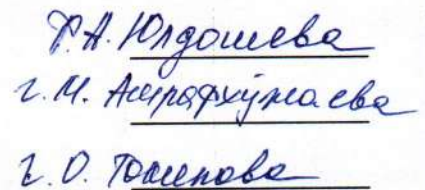 Р.А. Юлдошева
г. М. Ашрафхўжаева
г. О. Тошпова